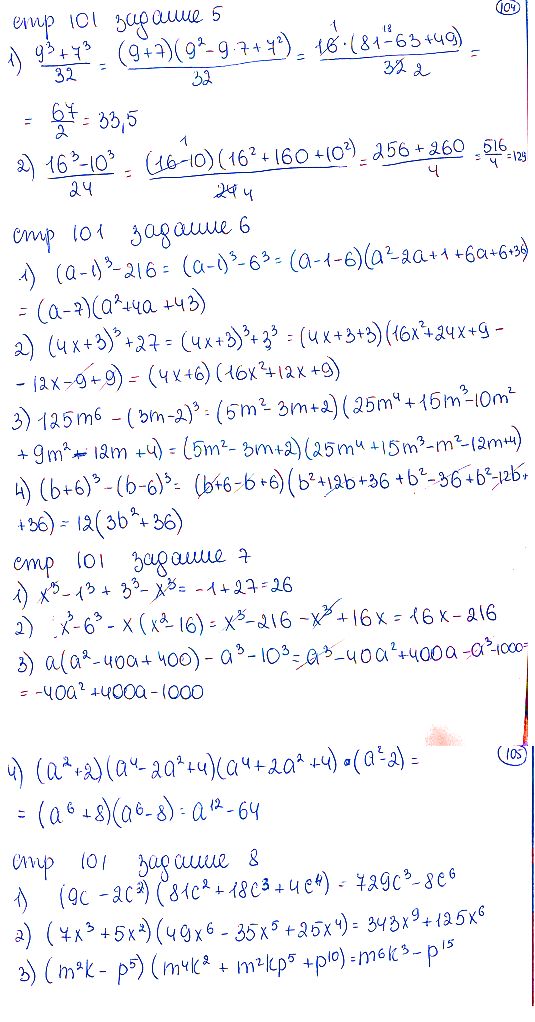 104
стр 101 задание 5
1) (9³+7³)/32 = ((9+7)(9²-9·7+7²))/32 = (16·(81-63+49))/(32 2) =
= 67/2 = 33,5
2) (16³-10³)/24 = ((16-10)(16²+160+10²))/(24 4) = (256+260)/4 = 516/4 = 129
стр 101 задание 6
1) (a-1)³-216 = (a-1)³-6³ = (a-1-6)(a²-2a+1+6a+6+36)
= (a-7)(a²+4a+43)
2) (4x+3)³+27 = (4x+3)³+3³ = (4x+3+3)(16x²+24x+9-
-12x-9+9) = (4x+6)(16x²+12x+9)
3) 125m⁶-(3m-2)³ = (5m²-3m+2)(25m⁴+15m³-10m²
+9m²-12m+4) = (5m²-3m+2)(25m⁴+15m³-m²-12m+4)
4) (b+6)³-(b-6)³ = (b+6-b+6)(b²+12b+36+b²-36+b²-12b+
+36) = 12(3b²+36)
стр 101 задание 7
1) x³-1³+3³-x³ = -1+27 = 26
2) x³-6³-x(x²-16) = x³-216-x³+16x = 16x-216
3) a(a²-40a+400)-a³-10³ = a³-40a²+400a-a³-1000=
= -40a²+400a-1000
105
4) (a²+2)(a⁴-2a²+4)(a⁴+2a²+4)·(a²-2) =
= (a⁶+8)(a⁶-8) = a¹²-64
стр 101 задание 8
1) (9c-2c²)(81c²+18c³+4c⁴) = 729c³-8c⁶
2) (7x³+5x²)(49x⁶-35x⁵+25x⁴) = 343x⁹+125x⁶
3) (m²k-p⁵)(m⁴k²+m²kp⁵+p¹⁰) = m⁶k³-p¹⁵